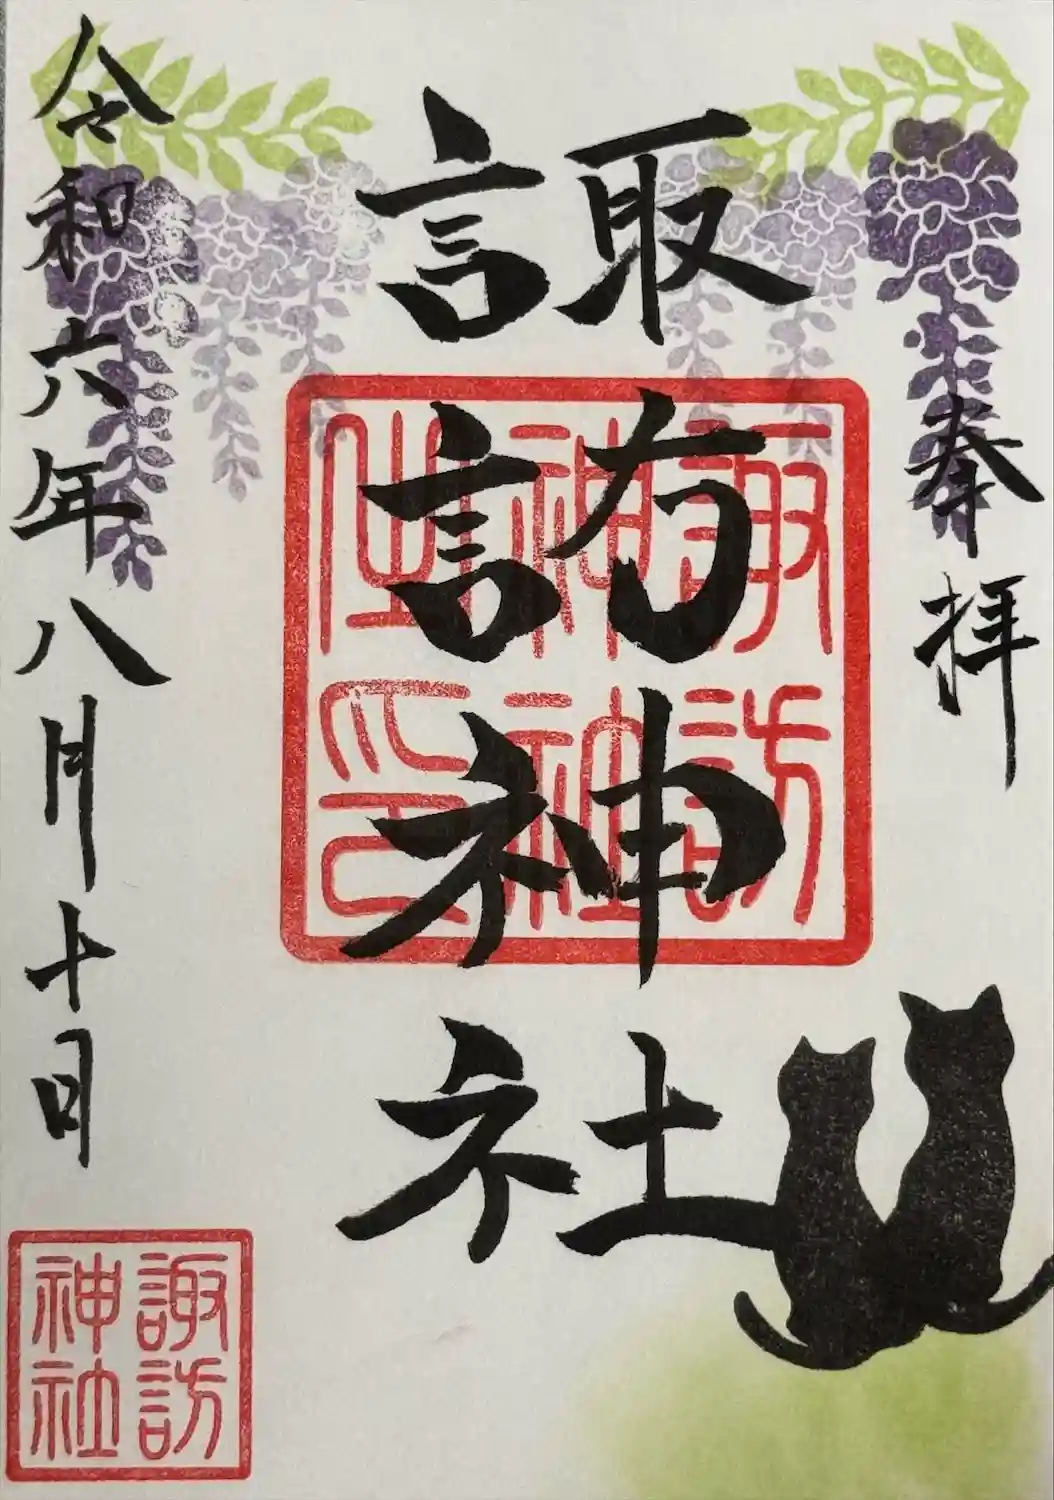 奉拝
諏訪神社
諏訪
神社
神主印
令和六年八月十日
諏訪
神社